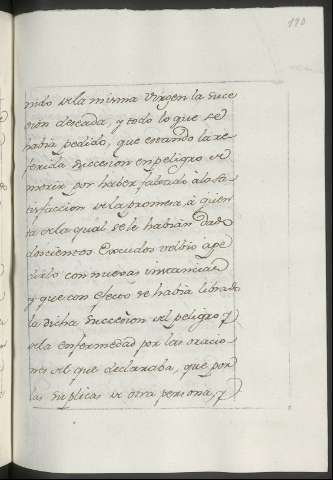 190
nido de la misma Virgen la suce
cion deseada, y todo lo que se
havia pedido, que estando la re
ferida succesion en peligro de
morir por haber faltado á la sa
tisfaccion de la promesa, á quen
ta de la qual se le habian dado
doscientos Escudos volbio a pe
dirlo con nuevas instancias
y que con efecto se habia librado
la dicha succesion del peligro, y
de la enfermedad por las oracio
nes del que declaraba, que por
las suplicas de otra persona, y